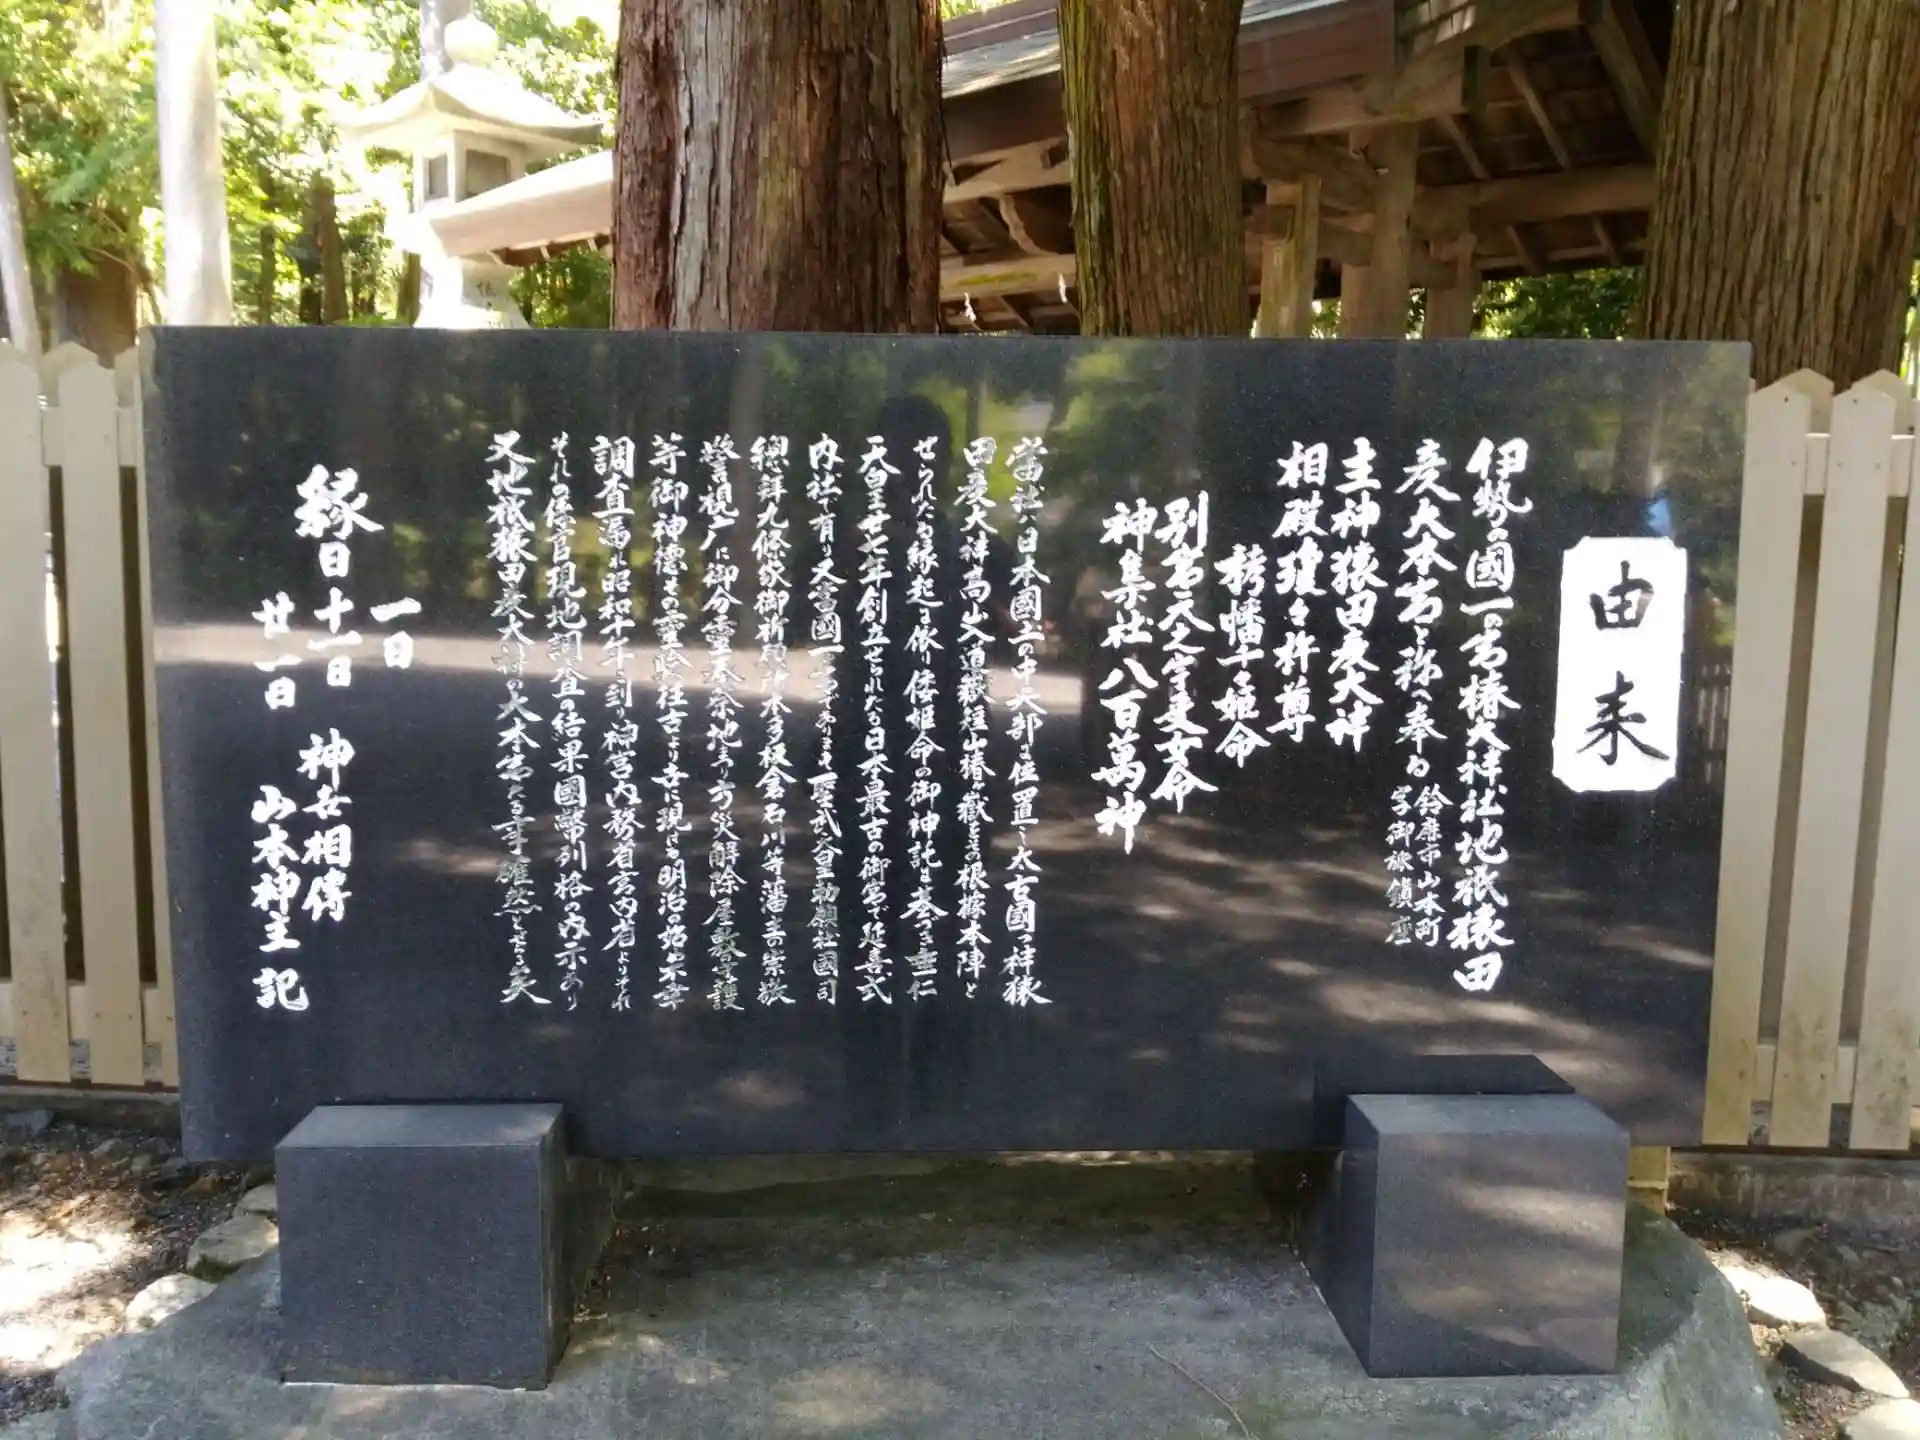 由来
伊勢の國一の宮椿大神社地祇猿田
彦大本宮と称へ奉る 鈴鹿市山本町
字御旅鎮座
主神猿田彦大神
相殿瓊々杵尊
栲幡千々姫命
別宮天之宇受女命
神集社八百萬神
當社は日本國土の中央部に位置し太古國つ神猿
田彦大神高山入道嶽短山椿ヶ嶽をその根據本陣と
せられたる縁起に依り倭姫命の御神託に基づき垂仁
天皇廿七年創立せられたる日本最古の御宮で延喜式
内社で有り又當國一の宮であります聖武天皇勅願社國司
總拝九條家御祈願所本多板倉石川等藩主の崇敬
警視庁に御分霊奉祭地まつり方災解除屋敷守護
等御神徳その霊験往古より幸に現はる明治の始め不幸
調査漏れ昭和十年に到り神宮内務省宮内省よりそれ
それの係官現地調査の結果國幣列格の内示あり
又地祇猿田彦大神の大本宮たる事確然とせる矣
縁日
一日
十一日
廿一日
神世相傳
山本神主 記